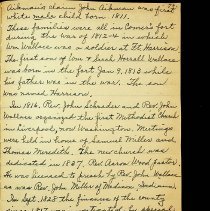 Aikman's claim John Aikman as first
white male child born 1811.
These families were all in Conner's fort
during the war of 1812-14 in which
Wm Wallace was a soldier at Ft. Harrison.
The first son of Wm & Sarah Horrall Wallace
was born in the fort Jan 9, 1813 while
his father was in the war. The son
was named Harrison.
In 1816, Rev John Schrader and Rev. John
Wallace organized the first Methodist Church
in Liverpool, now Washington. Meetings
were held in homes of Samuel Miller and
Thomas Meredith. The new church was
dedicated in 1827, Rev. Aaron Wood, pastor.
He was licensed to preach by Rev. John Wallace
as was Rev. John Miller of Madison, Indiana.
In Sept. 1828 the finances of the county
since 1817 was